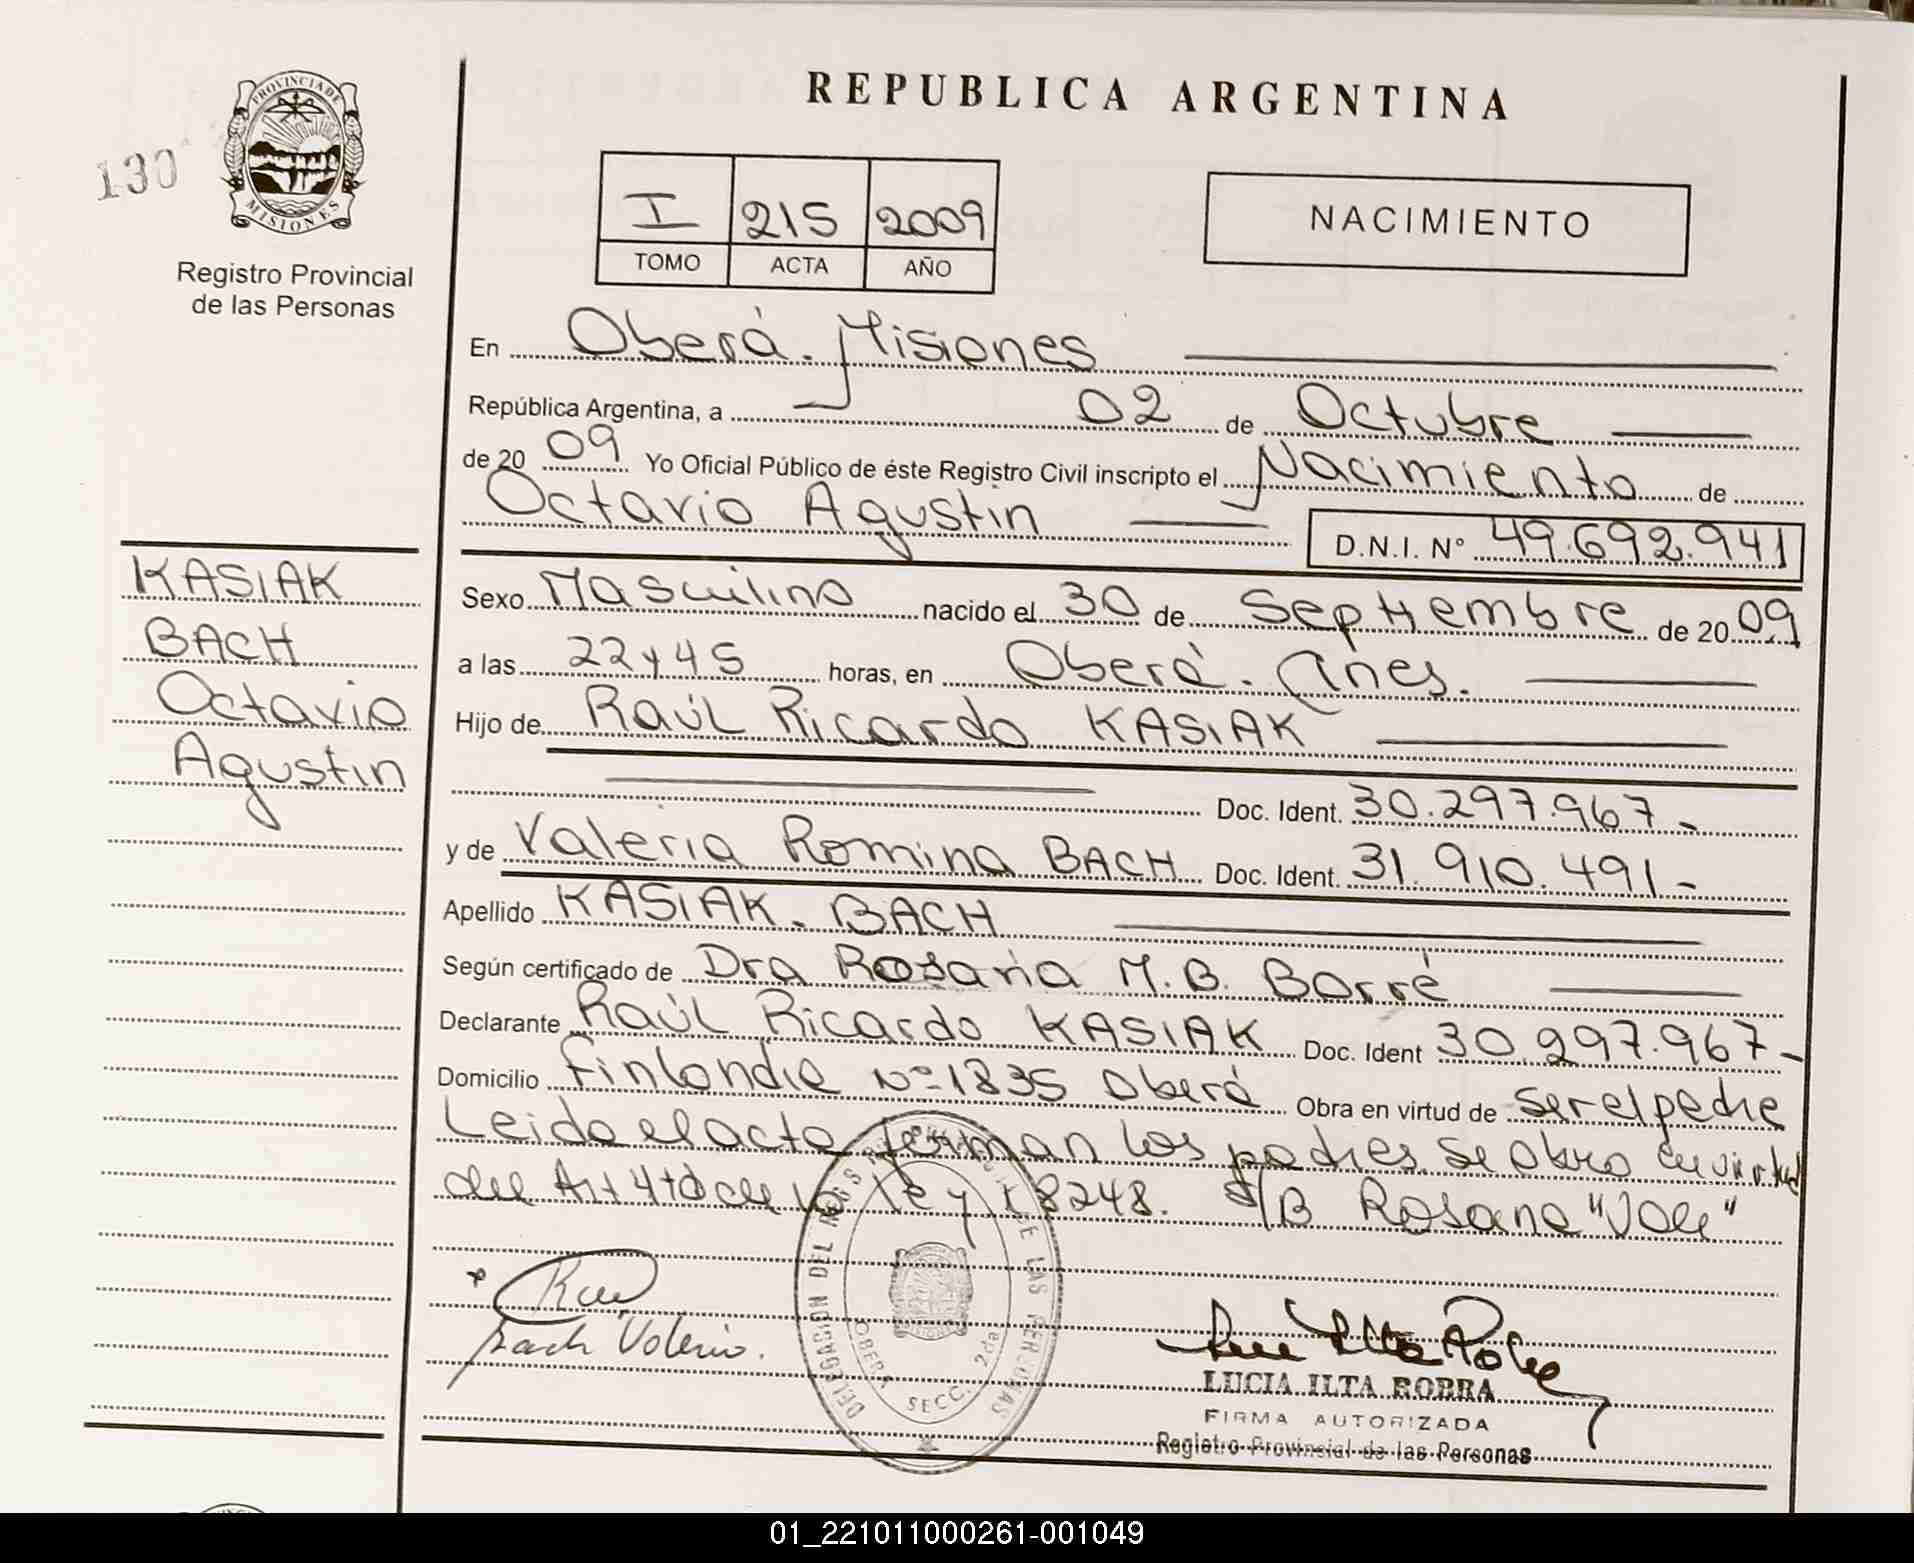 REPUBLICA ARGENTINA
PROVINCIA DE
MISIONES
130
Registro Provincial
de las Personas
I 215 2009
TOMO ACTA AÑO
NACIMIENTO
En Oberá. Misiones
República Argentina, a 02 de Octubre
de 20 09 Yo Oficial Público de éste Registro Civil inscripto el Nacimiento de
Octavio Agustin D.N.I. Nº 49.692.941
KASIAK
BACH
Octavio
Agustin
Sexo Masculino nacido el 30 de Septiembre de 20 09
a las 22 y 45 horas, en Oberá. Mnes.
Hijo de Raúl Ricardo KASIAK
Doc. Ident. 30.297.967-
y de Valeria Romina BACH Doc. Ident. 31.910.491-
Apellido KASIAK. BACH
Según certificado de Dra Rosana M.B. Borré
Declarante Raúl Ricardo KASIAK Doc. Ident 30.297.967-
Domicilio Finlandia Nº 1835 Oberá Obra en virtud de ser el padre
Leida el acta firman los padres. Se obra en virtud
del Art 4to de la ley 18248. S/B Rosana "Vale"
Bach Valeria.
DELEGACION DEL REGISTRO PROVINCIAL DE LAS PERSONAS
OBERA SECC. 2da
LUCIA ILTA ROBRA
FIRMA AUTORIZADA
Registro Provincial de las Personas
01_221011000261-001049